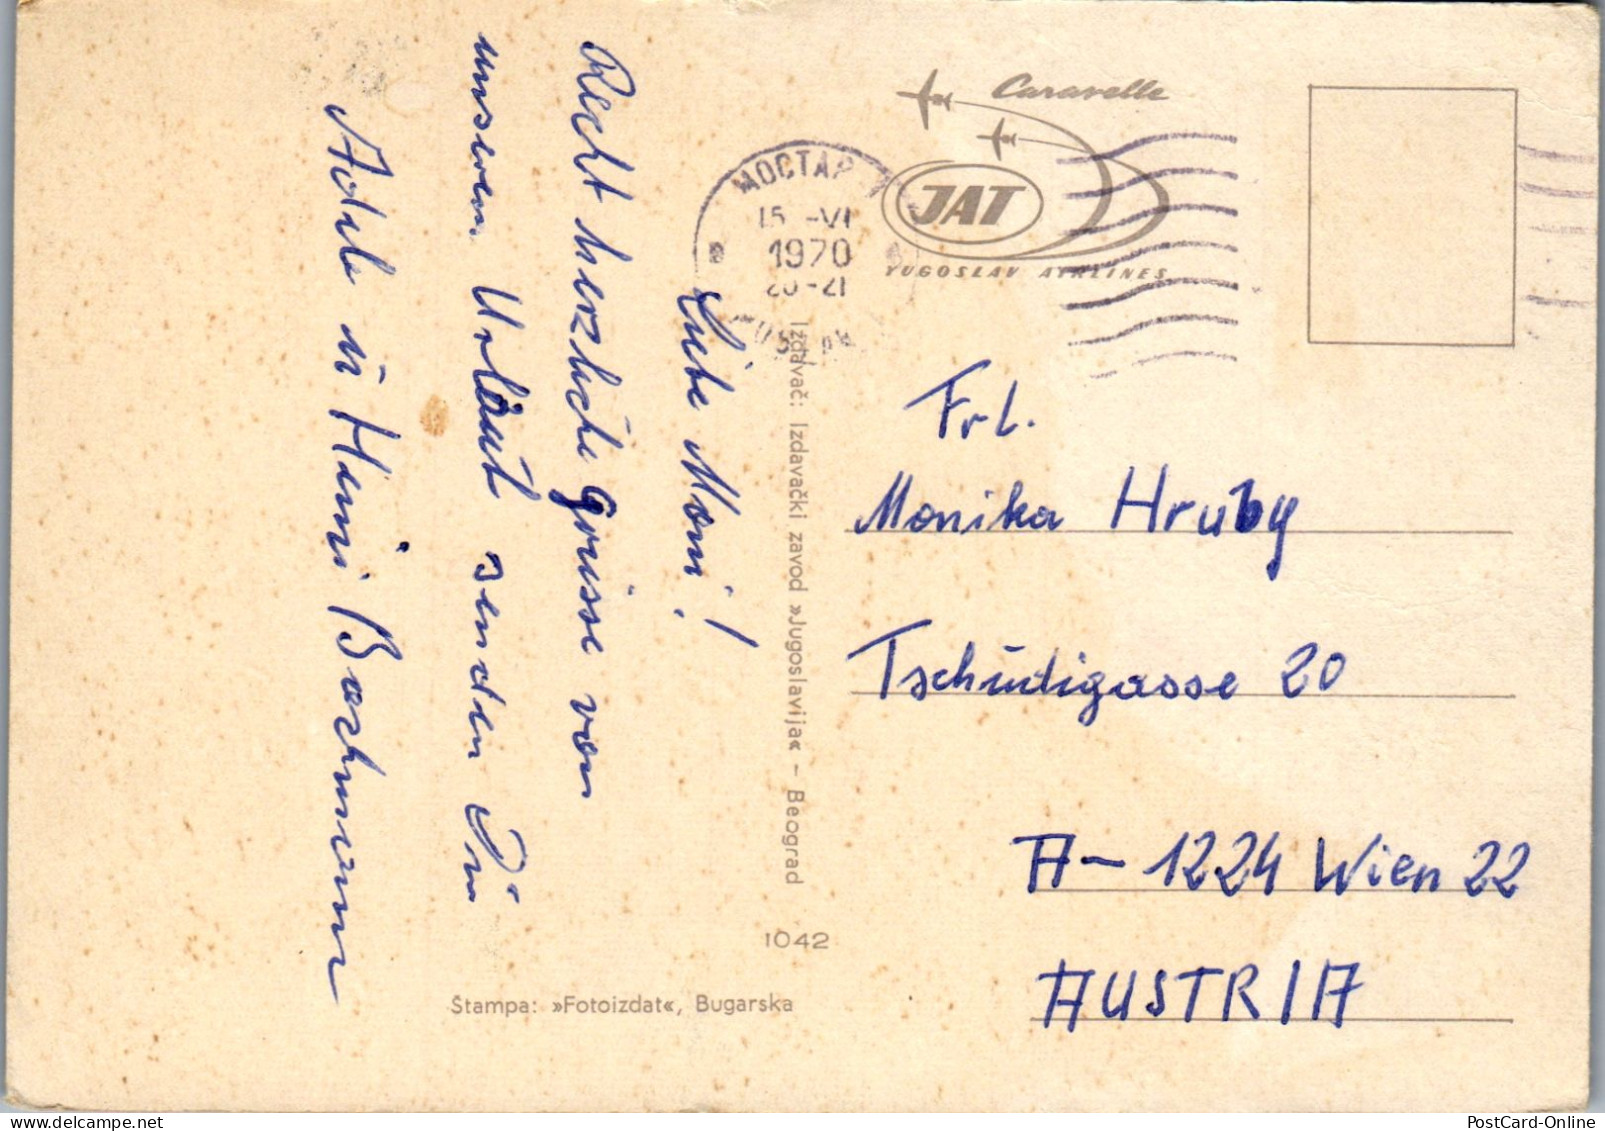 Liebe Moni!
Recht herzliche Grüsse von
unserem Urlaub senden Dir
Adele u. Heini Bachmann
Caravelle
JAT
YUGOSLAV AIRLINES
МОСТАР
15 -VI
1970
20-21
Izdavač: Izdavački zavod »Jugoslavija« – Beograd
1042
Štampa: »Fotoizdat«, Bugarska
Frl.
Monika Hruby
Tschudigasse 20
A- 1224 Wien 22
AUSTRIA
PostCard-Online